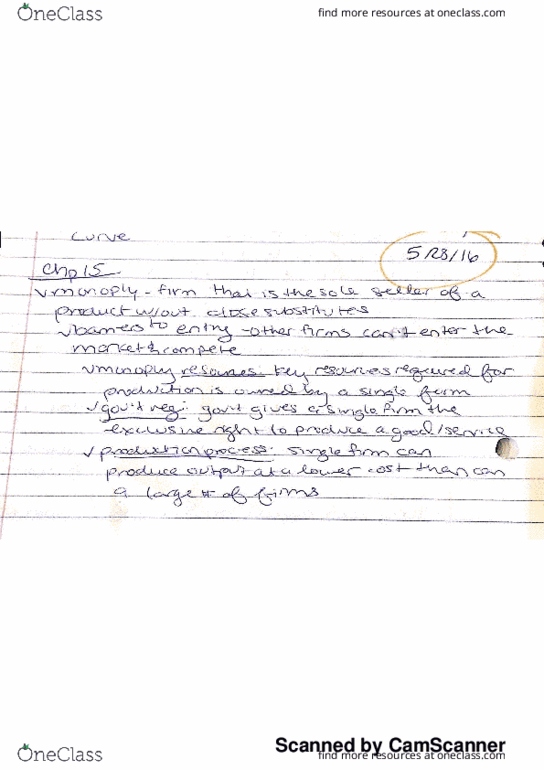 OneClass
find more resources at oneclass.com
curve
5/23/16
Chp 15
monoply - firm that is the sole seller of a
product w/out close substitutes
barriers to entiry - other firms can't enter the
market & compete
monoply resources: key resources required for
production is owned by a single firm
gov't reg: gov't gives a single firm the
exclusive right to produce a good/service
production process: single firm can
produce output at a lower cost than can
a large # of firms
Scanned by CamScanner
OneClass
find more resources at oneclass.com